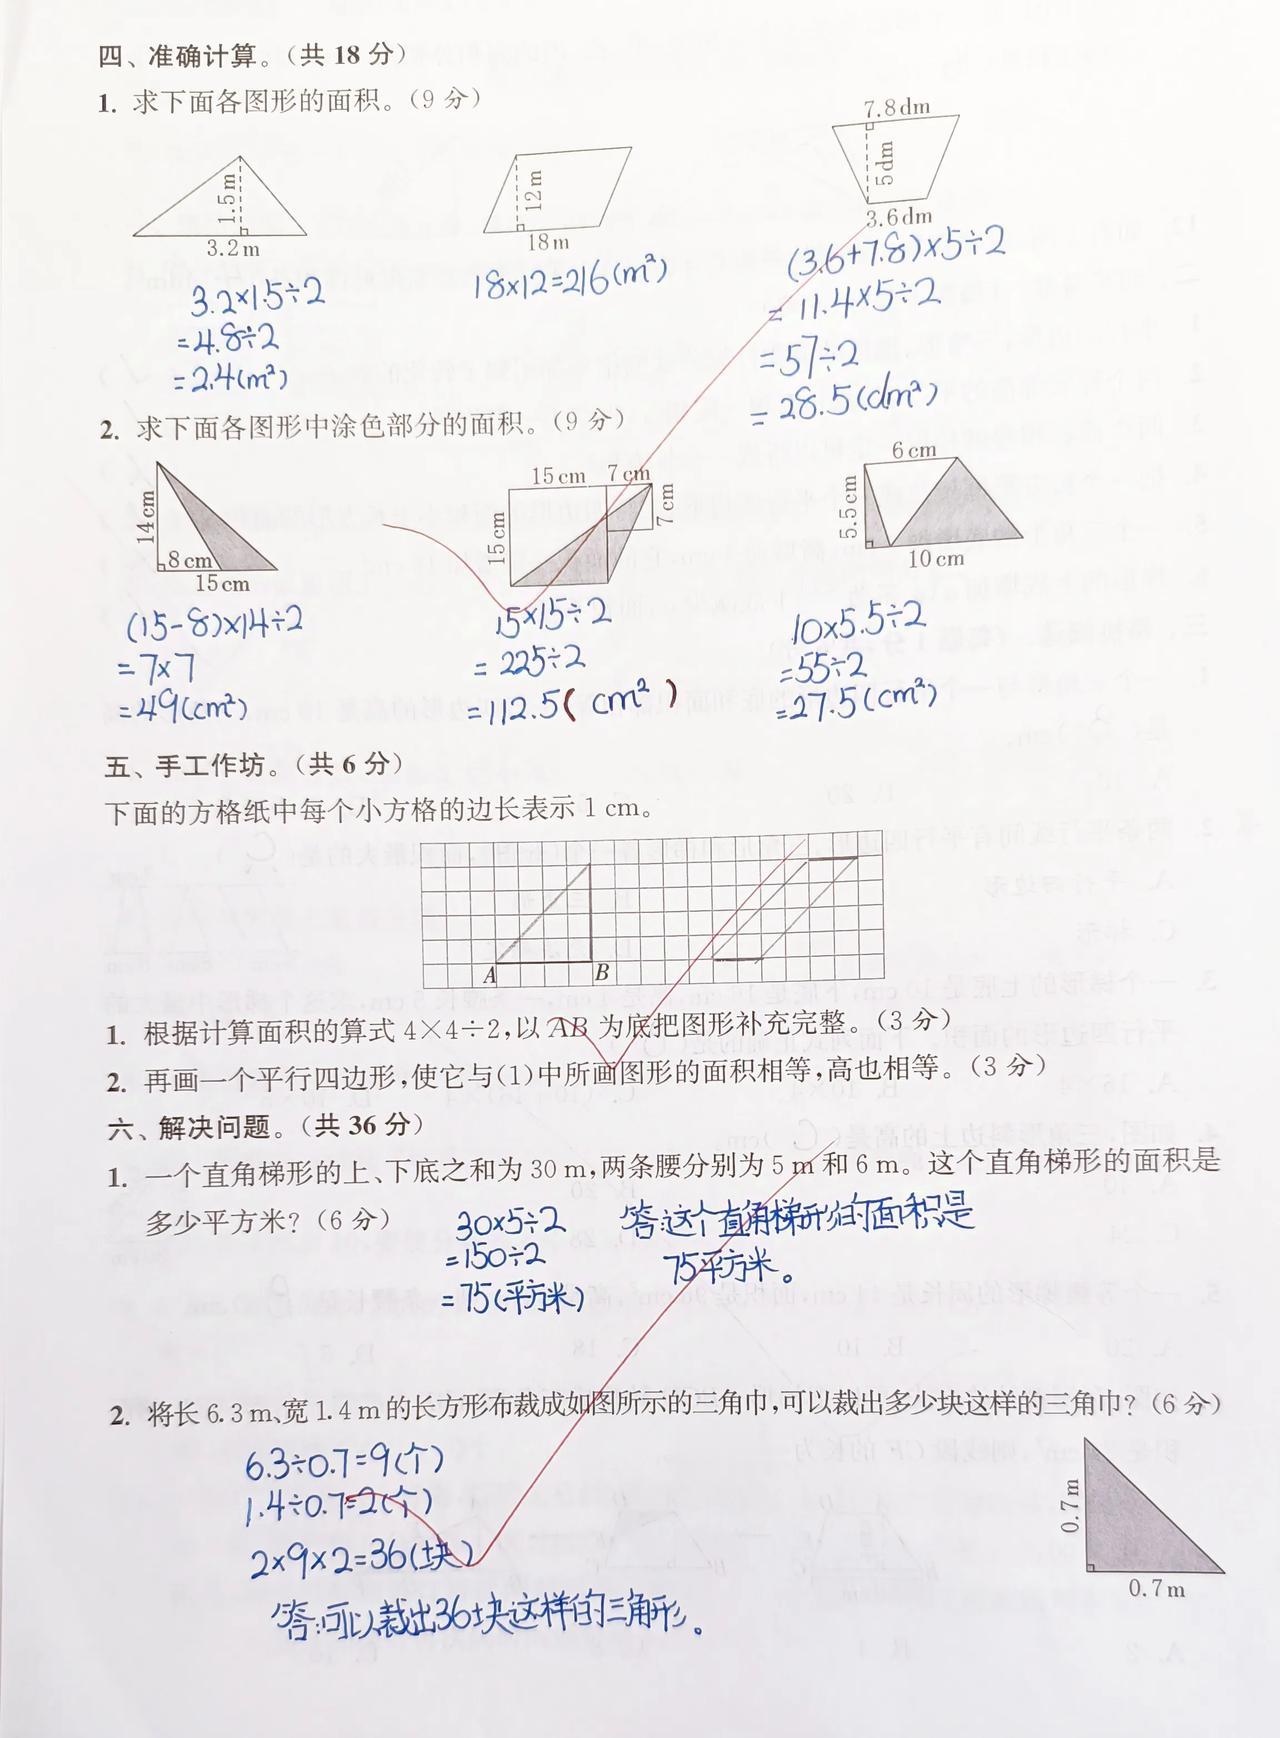 四、准确计算。(共 18 分)
1. 求下面各图形的面积。(9 分)
1.5 m
3.2 m
12 m
18 m
7.8 dm
5 dm
3.6 dm
3.2×1.5÷2
=4.8÷2
=2.4(m²)
18×12=216(m²)
(3.6+7.8)×5÷2
=11.4×5÷2
=57÷2
=28.5(dm²)
2. 求下面各图形中涂色部分的面积。(9 分)
14 cm
8 cm
15 cm
15 cm 7 cm
15 cm
7 cm
6 cm
5.5 cm
10 cm
(15-8)×14÷2
=7×7
=49(cm²)
15×15÷2
=225÷2
=112.5(cm²)
10×5.5÷2
=55÷2
=27.5(cm²)
五、手工作坊。(共 6 分)
下面的方格纸中每个小方格的边长表示 1 cm。
A B
1. 根据计算面积的算式 4×4÷2,以 AB 为底把图形补充完整。(3 分)
2. 再画一个平行四边形,使它与(1)中所画图形的面积相等,高也相等。(3 分)
六、解决问题。(共 36 分)
1. 一个直角梯形的上、下底之和为 30 m,两条腰分别为 5 m 和 6 m。这个直角梯形的面积是
多少平方米?(6 分)
30×5÷2
=150÷2
=75(平方米)
答:这个直角梯形的面积是
75平方米。
2. 将长 6.3 m、宽 1.4 m 的长方形布裁成如图所示的三角巾,可以裁出多少块这样的三角巾?(6 分)
6.3÷0.7=9(个)
1.4÷0.7=2(个)
2×9×2=36(块)
答:可以裁出36块这样的三角形。
0.7 m
0.7 m